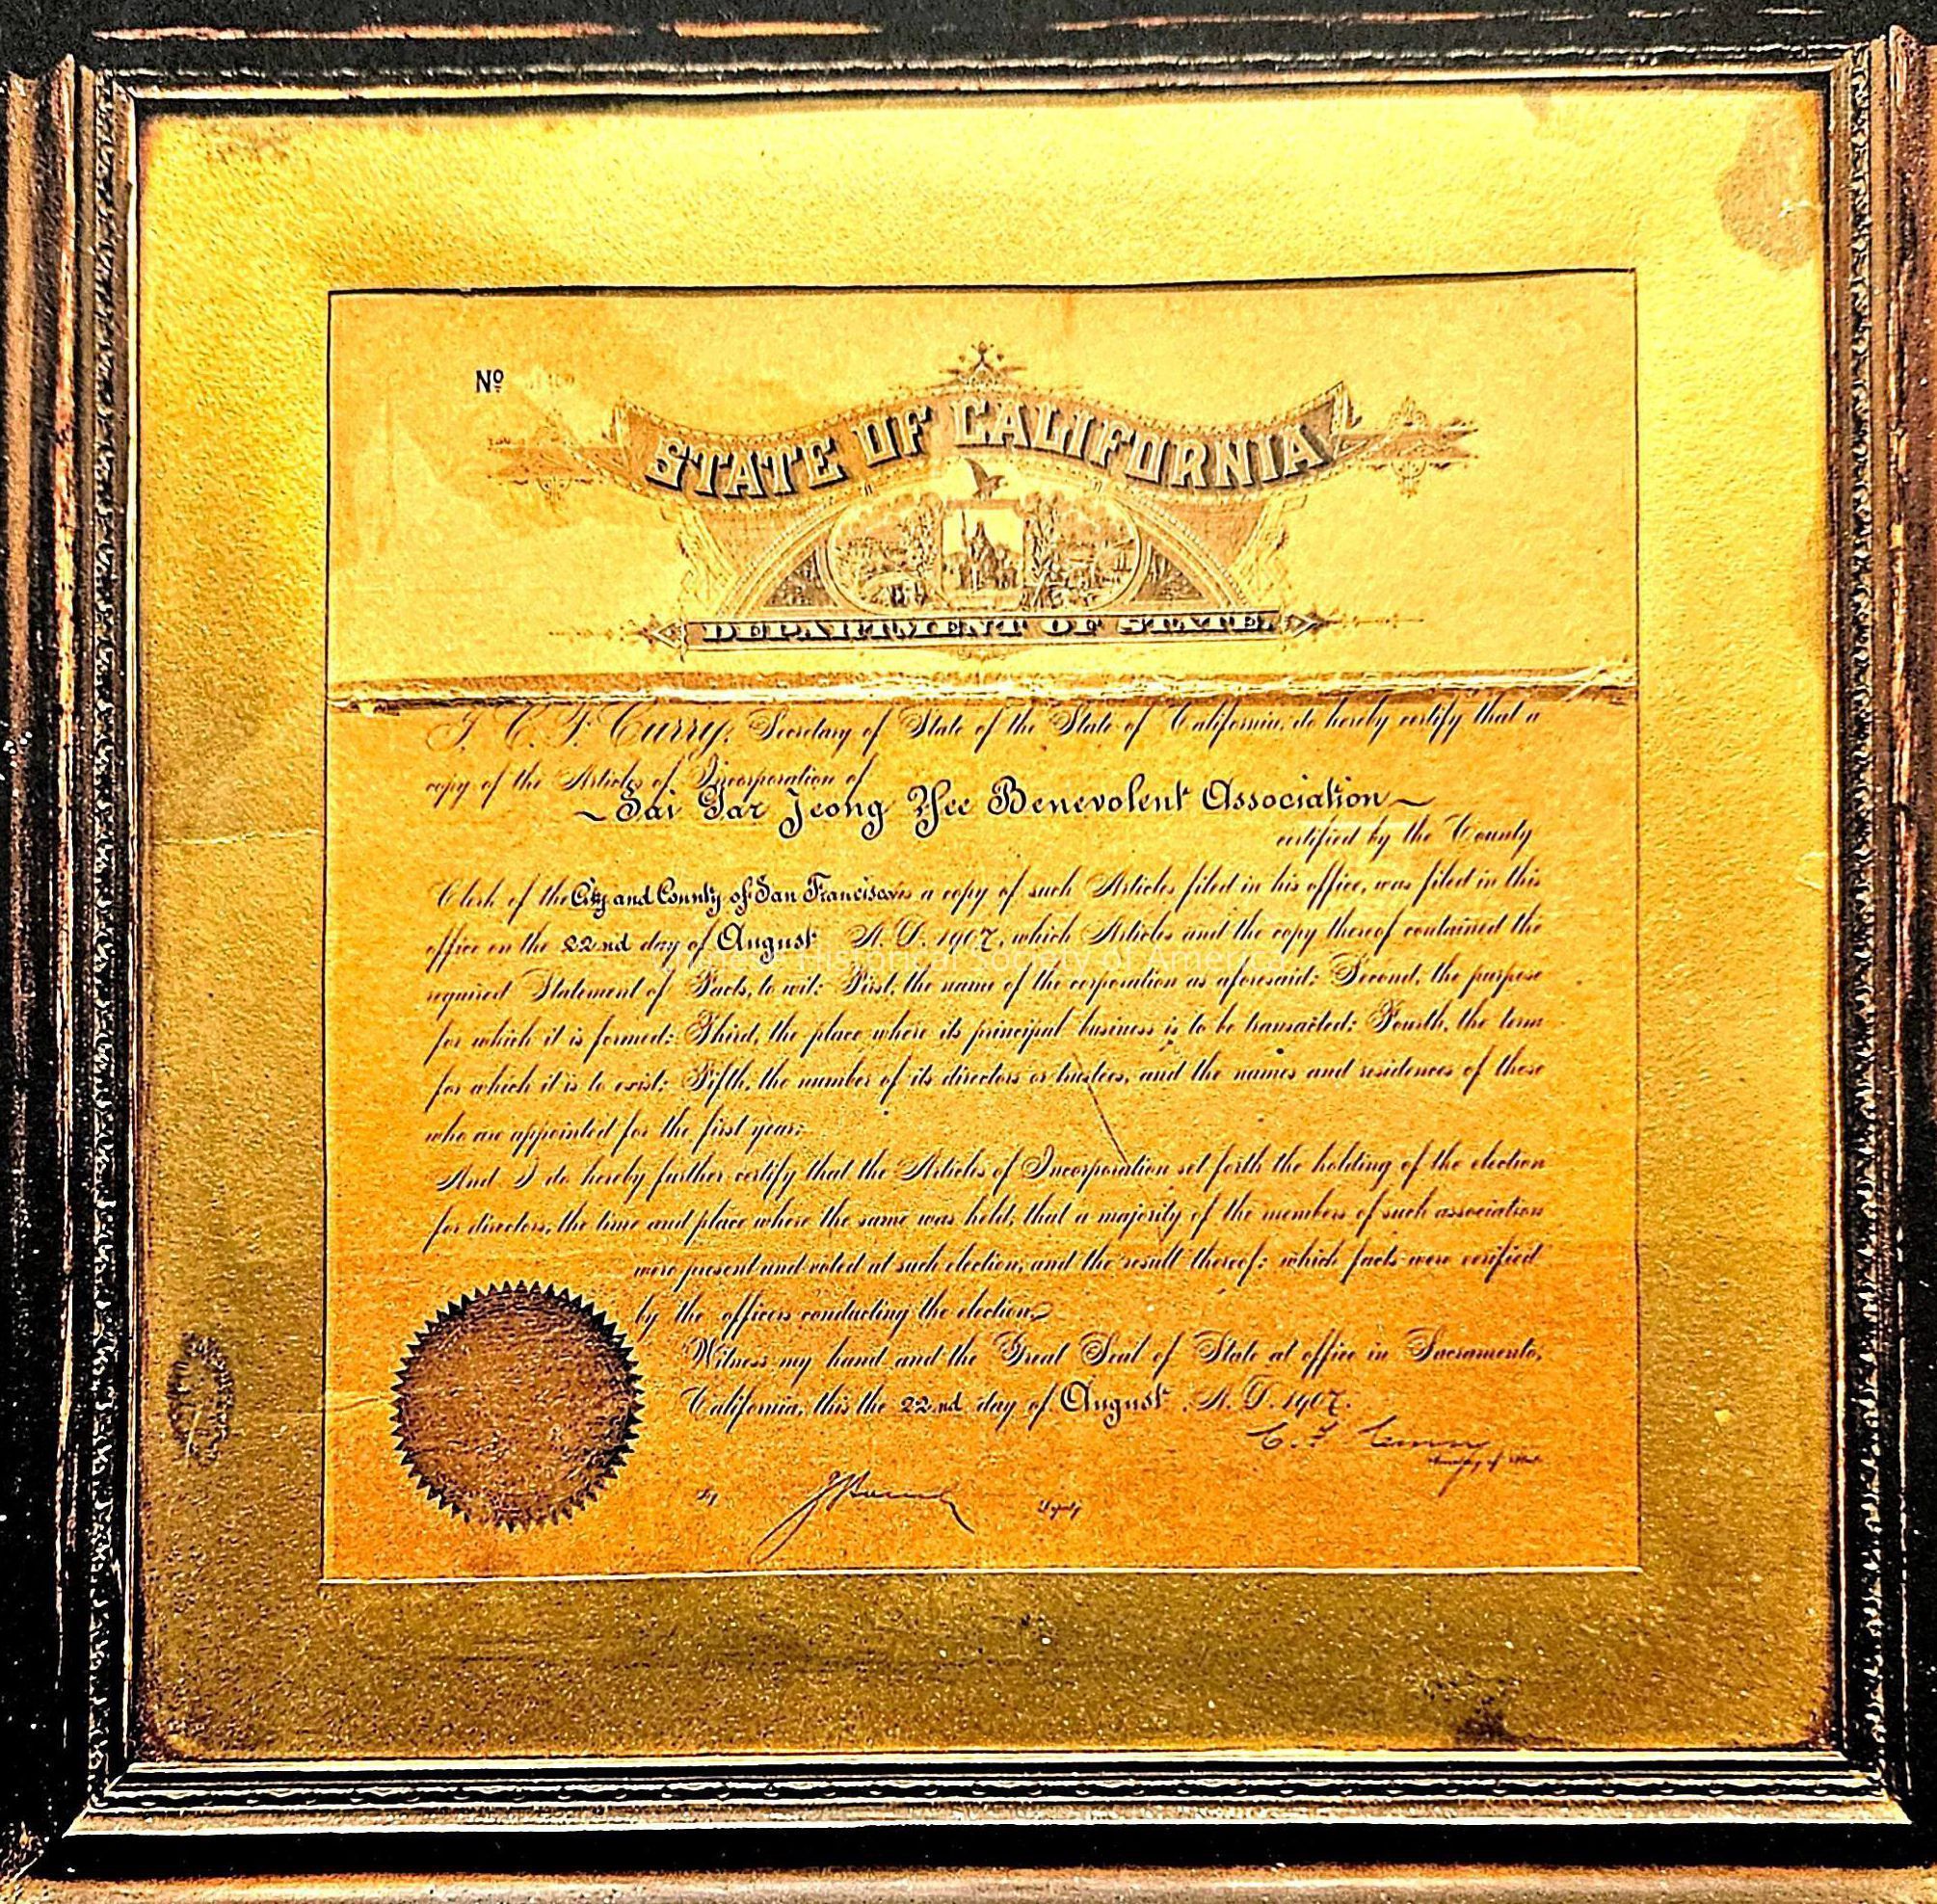 No
STATE OF CALIFORNIA
DEPARTMENT OF STATE.
I, C. F. Curry, Secretary of State of the State of California, do hereby certify that a
copy of the Articles of Incorporation of
~ Sai Gar Jeong Yee Benevolent Association ~
certified by the County
Clerk of the City and County of San Francisco as a copy of such Articles filed in his office, was filed in this
office on the 22nd day of August A. D. 1907, which Articles and the copy thereof contained the
Chinese Historical Society of America
required Statement of Facts, to wit: First, the name of the corporation as aforesaid; Second, the purpose
for which it is formed; Third, the place where its principal business is to be transacted; Fourth, the term
for which it is to exist; Fifth, the number of its directors or trustees, and the names and residences of those
who are appointed for the first year;
And I do hereby further certify that the Articles of Incorporation set forth the holding of the election
for directors, the time and place where the same was held, that a majority of the members of such association
were present and voted at such election, and the result thereof; which facts were verified
by the officers conducting the election.
Witness my hand and the Great Seal of State at office in Sacramento,
California, this the 22nd day of August A. D. 1907.
C. F. Curry
Secretary of State
By Deputy